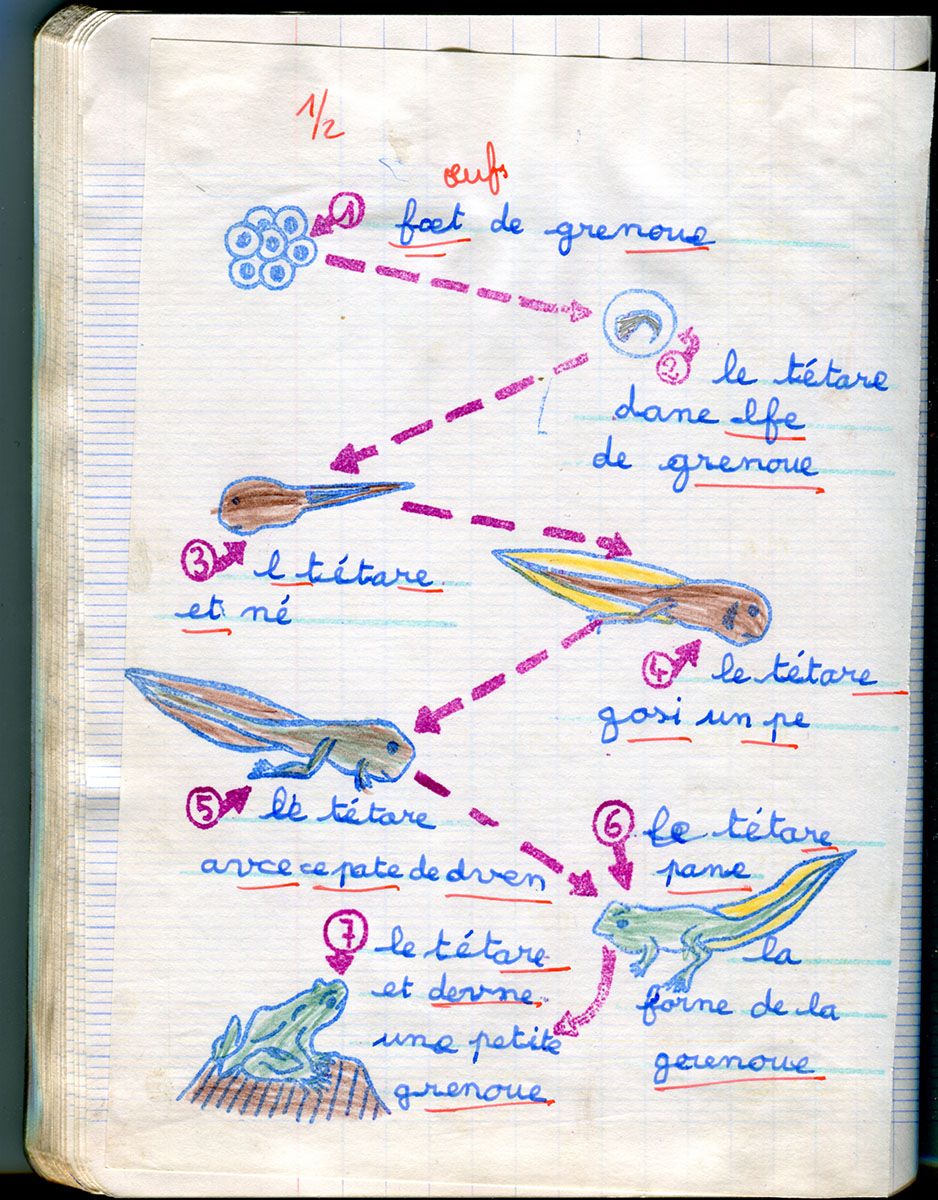 1/2
œufs
1 fœt de grenoue
2 le tétare
dane lfe
de grenoue
3 l tétare
et né
4 le tétare
gosi un pe
5 le tétare
avce ce pate de dven
6 le tétare
pane
la
forne de la
gerenoue
7 le tétare
et devne
une petite
grenoue